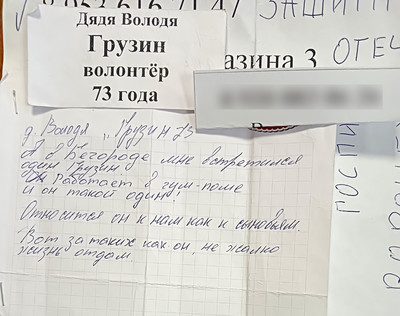 8 953 616 71 47
Дядя Володя
Грузин
волонтёр
73 года
ЗАЩИТН
азина 3
ОТЕЧ
д. Володя „Грузин 73
в Бегороде мне встретился
один Грузин.
Он Работает в гум-поме
и он такой один!
Относится он к нам как к сыновьям.
Вот за таких как он, не жалко
жизнь отдам
ГОСПИ